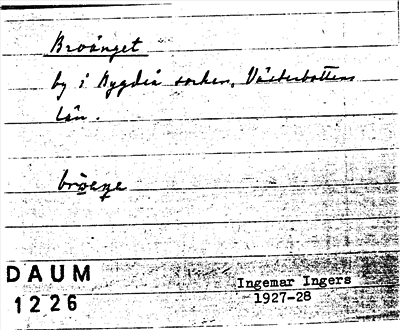 Broänget
by i Nygdeå socken, Västerbottens
län.
DAUM
1226
Ingemar Ingers
1927-28